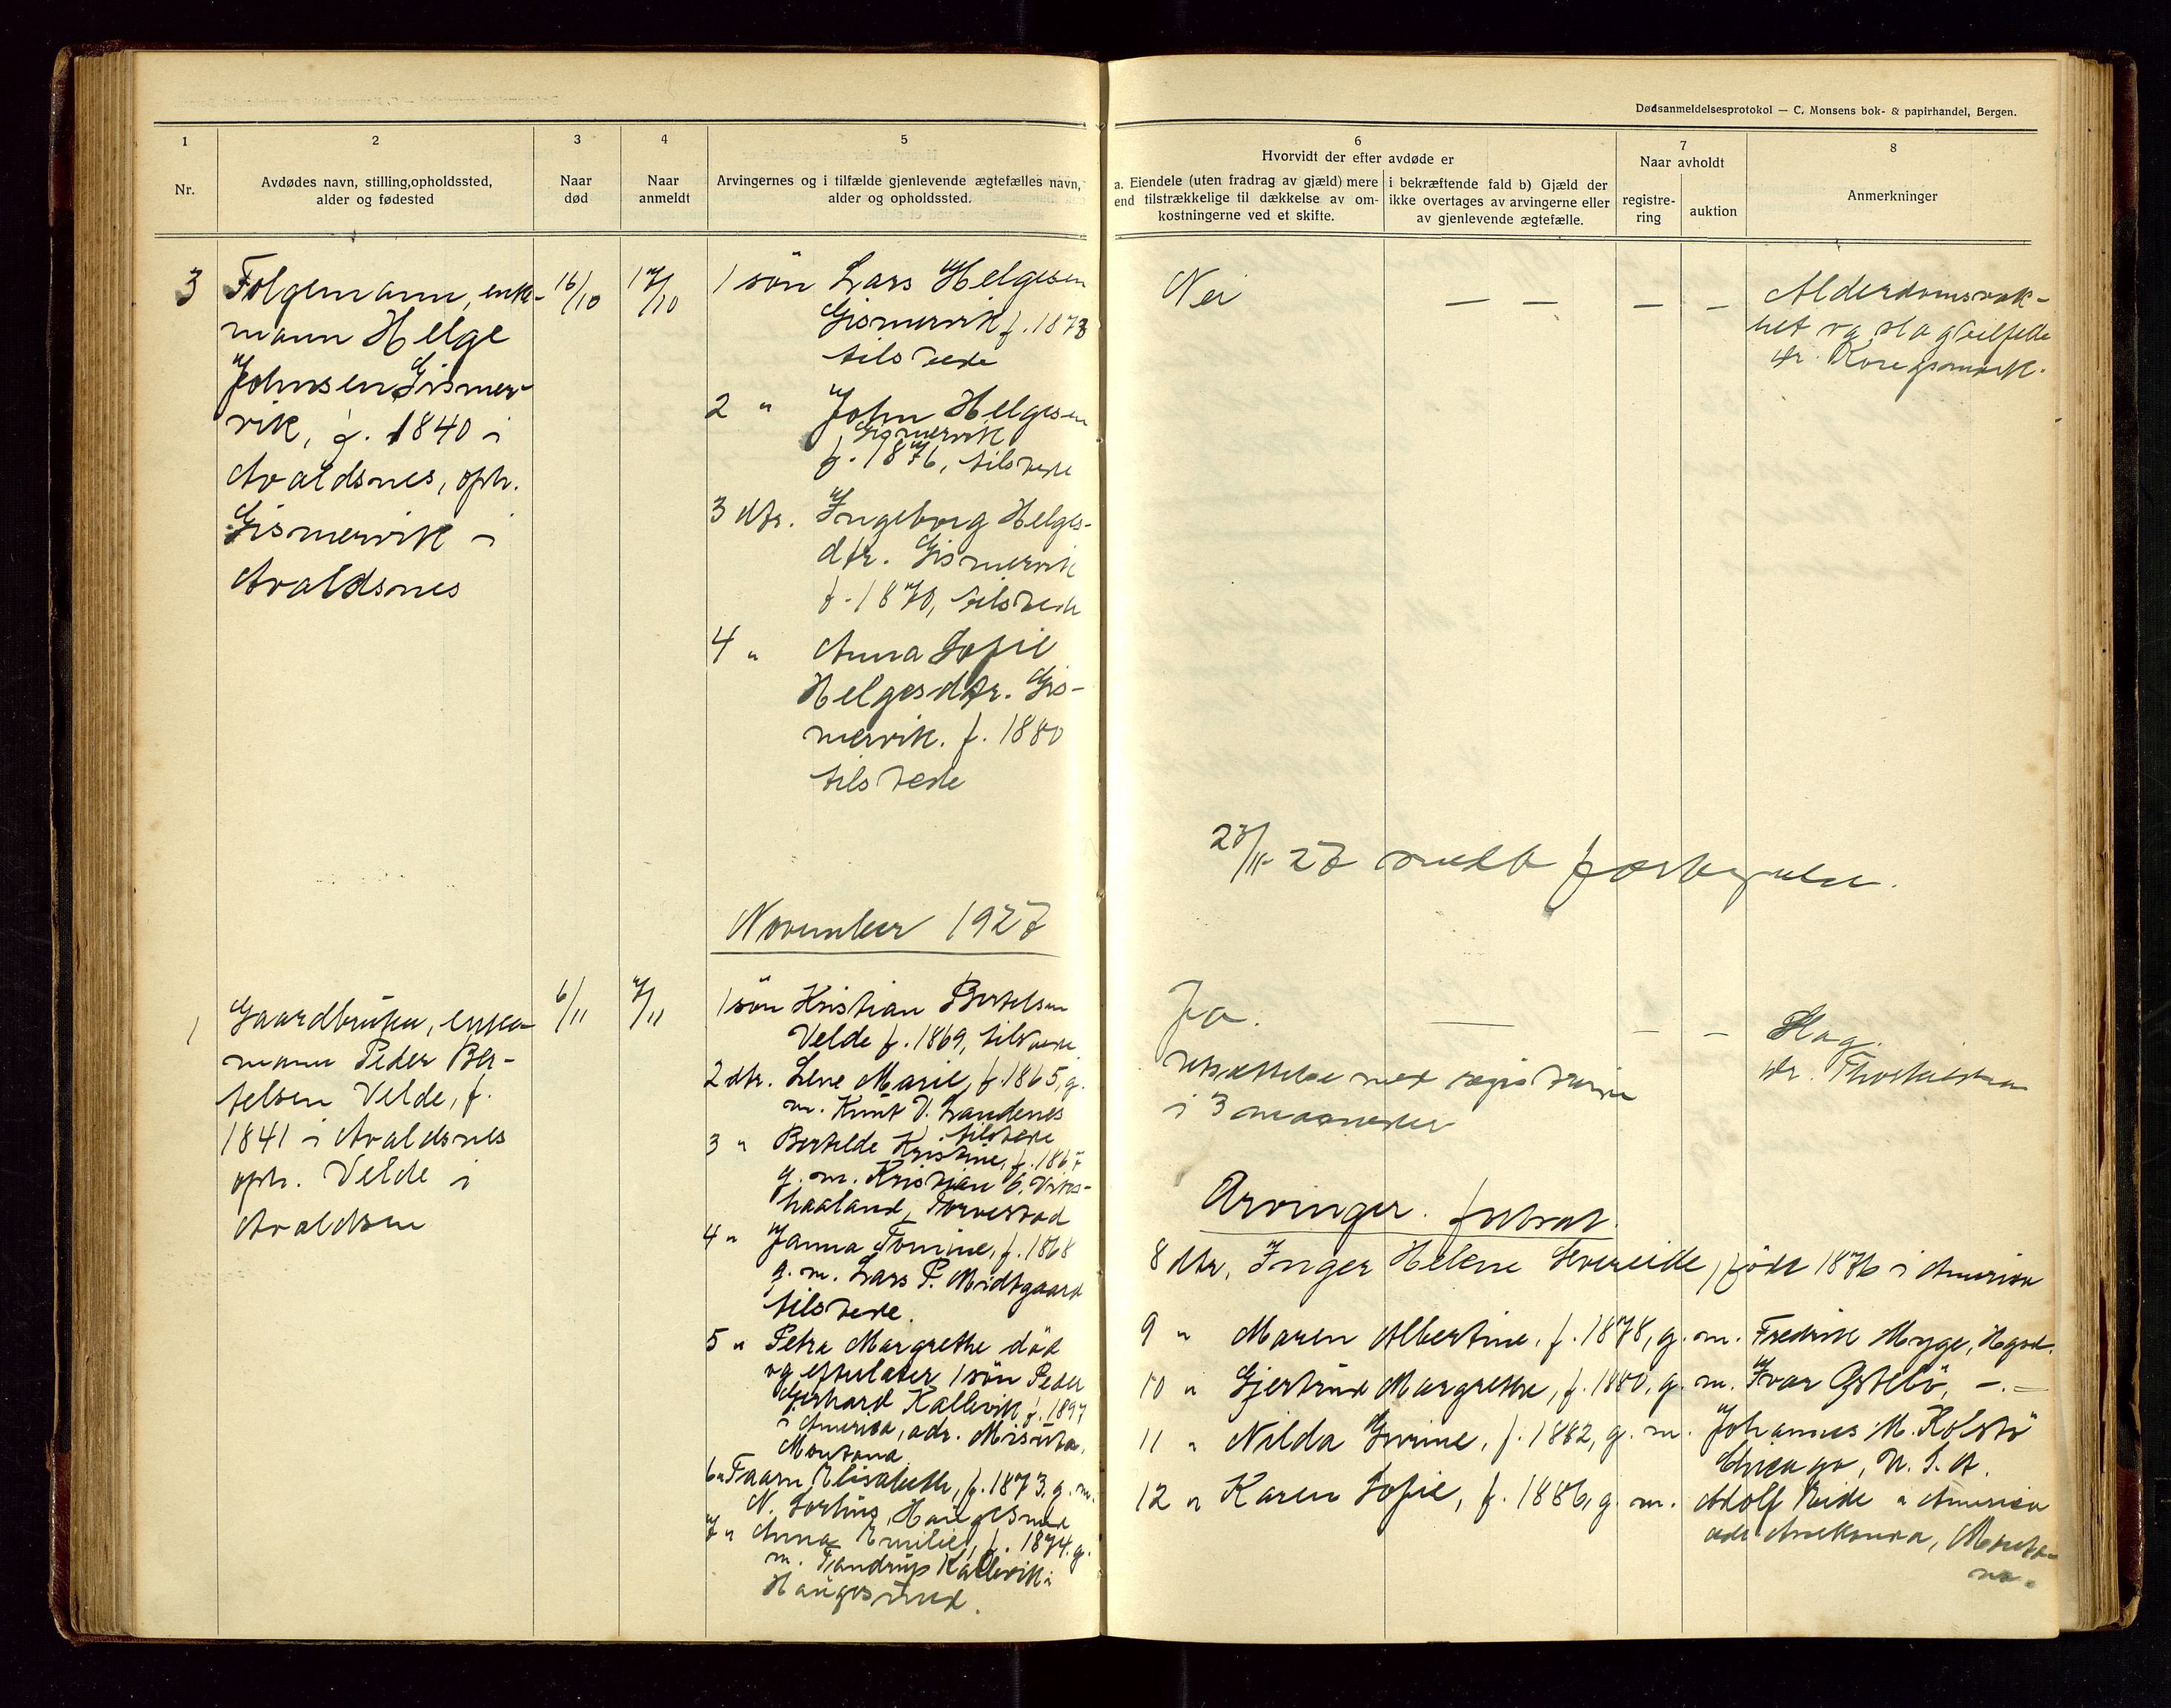 Dødsanmeldelsesprotokol — C. Monsens bok- & papirhandel, Bergen.
1
2
3
4
5
6
7
8
Nr.
Avdødes navn, stilling,opholdssted,
alder og fødested
Naar
død
Naar
anmeldt
Arvingernes og i tilfælde gjenlevende ægtefælles navn,
alder og opholdssted.
Hvorvidt der efter avdøde er
a. Eiendele (uten fradrag av gjæld) mere
end tilstrækkelige til dækkelse av om-
kostningerne ved et skifte.
i bekræftende fald b) Gjæld der
ikke overtages av arvingerne eller
av gjenlevende ægtefælle.
Naar avholdt
registre-
ring
auktion
Anmerkninger
3
Folgemann, enke-
mann Helge
Johnsen Gismer-
vik, f. 1840 i
Avaldsnes, oph.
Gismervik i
Avaldsnes
16/10
17/10
1 søn Lars Helgesen
Gismervik f. 1873
tilstede
2 " John Helgesen
Gismervik
f. 1876, tilstede
3 dtr. Ingeborg Helges-
dtr. Gismervik
f. 1870, tilstede
4 " Anna Sofie
Helgesdtr. Gis-
mervik. f. 1880
tilstede
Nei
— —
—
—
Alderdomsvak-
het og slagtilfelle
dr.
23/11-27
November 1927
1
Gaardbruker, enke-
mann Peder Ber-
telsen Velde, f.
1841 i Avaldsnes
oph. Velde i
Avaldsnes
6/11
7/11
1 søn Kristian Bertelsen
Velde f. 1869, tilstede
2 dtr. Lene Marie, f. 1865, g.
m. Knut V. Landenes
tilstede
3 " Bertilde Kristine, f. 1867
g. m. Kristian
haaland, Torvestad
4 " Janna Tomine, f. 1868
g. m. Lars P. Midtgaard
tilstede.
5 " Petra Margrethe død
og efterlater 1 søn Peder
Gerhard Kallevik f. 1897
i Amerika, adr.
Montana.
6 " Elisabeth, f. 1873, g. m.
N. Haugesund
7 " Anna Emilie, f. 1874. g.
m. Tandrup Kallevik i
Haugesund.
Ja.
—
—
—
Slag.
dr.
utsættelse med registrering
i 3 maaneder
Arvinger. fortsat.
8 dtr. Inger Helene Severeide, født 1876 i Amerika
9 " Maren Albertine, f. 1878, g. m. Fredrik Myge, Hgsd.
10 " Gjertrud Margrethe, f. 1880, g. m. Ivar Østebø, —.—
11 " Nilda f. 1882, g. m. Johannes M. Kolstø
Chicago, U. S. A.
12 " Karen Sofie, f. 1886, g. m. Adolf Eide i Amerika
adr. Anakonda, Monta-
na.